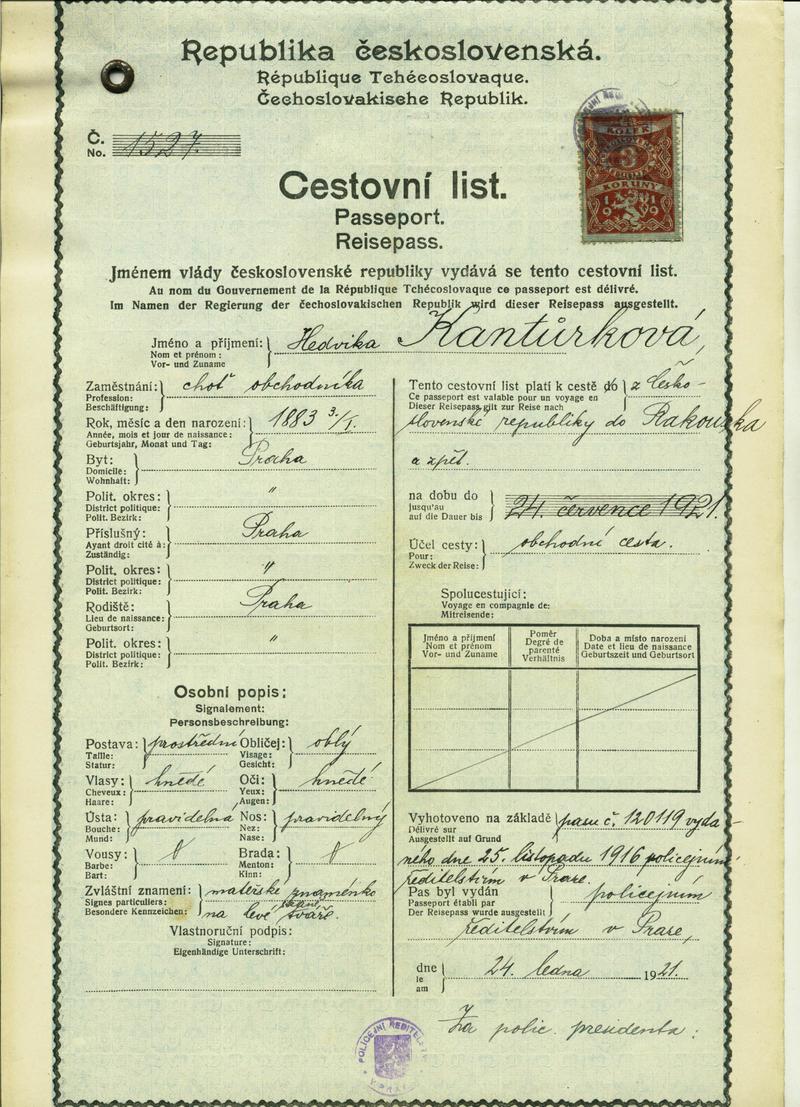 Republika československá.
République Tchécoslovaque.
Čechoslovakische Republik.
Č.
No. 1527.
KOLEK
3
KORUNY
1919
Cestovní list.
Passeport.
Reisepass.
Jménem vlády československé republiky vydává se tento cestovní list.
Au nom du Gouvernement de la République Tchécoslovaque ce passeport est délivré.
Im Namen der Regierung der čechoslovakischen Republik wird dieser Reisepass ausgestellt.
Jméno a příjmení: Hedvika Kantůrková,
Nom et prénom:
Vor- und Zuname
Zaměstnání: choť obchodníka
Profession:
Beschäftigung:
Rok, měsíc a den narození: 1883 3./I.
Année, mois et jour de naissance:
Geburtsjahr, Monat und Tag:
Byt: Praha
Domicile:
Wohnhaft:
Polit. okres: "
District politique:
Polit. Bezirk:
Příslušný: Praha
Ayant droit cité à:
Zuständig:
Polit. okres: "
District politique:
Polit. Bezirk:
Rodiště: Praha
Lieu de naissance:
Geburtsort:
Polit. okres: "
District politique:
Polit. Bezirk:
Osobní popis:
Signalement:
Personsbeschreibung:
Postava: prostřední Obličej: oblý
Taille: Visage:
Statur: Gesicht:
Vlasy: hnědé Oči: hnědé
Cheveux: Yeux:
Haare: Augen:
Ústa: pravidelná Nos: pravidelný
Bouche: Nez:
Mund: Nase:
Vousy: Brada:
Barbe: Menton:
Bart: Kinn:
Zvláštní znamení: mateřské znaménko
Signes particuliers:
Besondere Kennzeichen: na levé tváře.
Vlastnoruční podpis:
Signature:
Eigenhändige Unterschrift:
Tento cestovní list platí k cestě do z česko-
Ce passeport est valable pour un voyage en
Dieser Reisepass gilt zur Reise nach
slovenské republiky do Rakouska
a zpět.
na dobu do 24. července 1921.
jusqu'au
auf die Dauer bis
Účel cesty: obchodní cesta.
Pour:
Zweck der Reise:
Spolucestující:
Voyage en compagnie de:
Mitreisende:
Jméno a příjmení Poměr Doba a místo narození
Nom et prénom Degré de parenté Date et lieu de naissance
Vor- und Zuname Verhältnis Geburtszeit und Geburtsort
Vyhotoveno na základě pasu č. 120119 vyda-
Délivré sur
Ausgestellt auf Grund
ného dne 25. listopadu 1916 policejním
ředitelstvím v Praze.
Pas byl vydán policejním
Passeport établi par
Der Reisepass wurde ausgestellt
ředitelstvím v Praze,
dne 24. ledna 1921.
le
am
Za polic. presidenta:
POLICEJNÍ ŘEDITELSTVÍ
V PRAZE